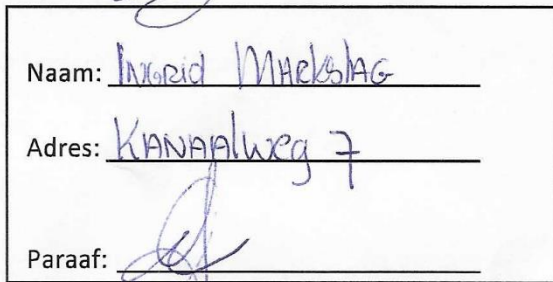 Naam: Ingrid Markslag
Adres: Kanaalweg 7
Paraaf: